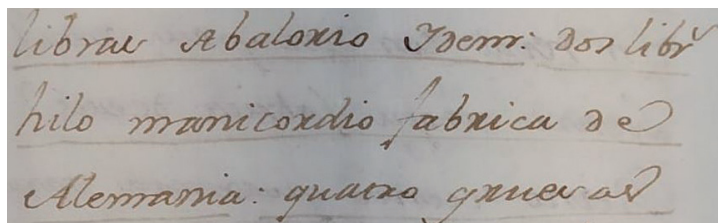 libras Abalorio Idem: dos libr^s
hilo manicordio fabrica de
Alemania: quatro gruesas